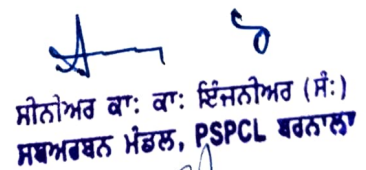 ਸੀਨੀਅਰ ਕਾ: ਕਾ: ਇੰਜਨੀਅਰ (ਸੰ:)
ਸਬਅਰਬਨ ਮੰਡਲ, PSPCL ਬਰਨਾਲਾ